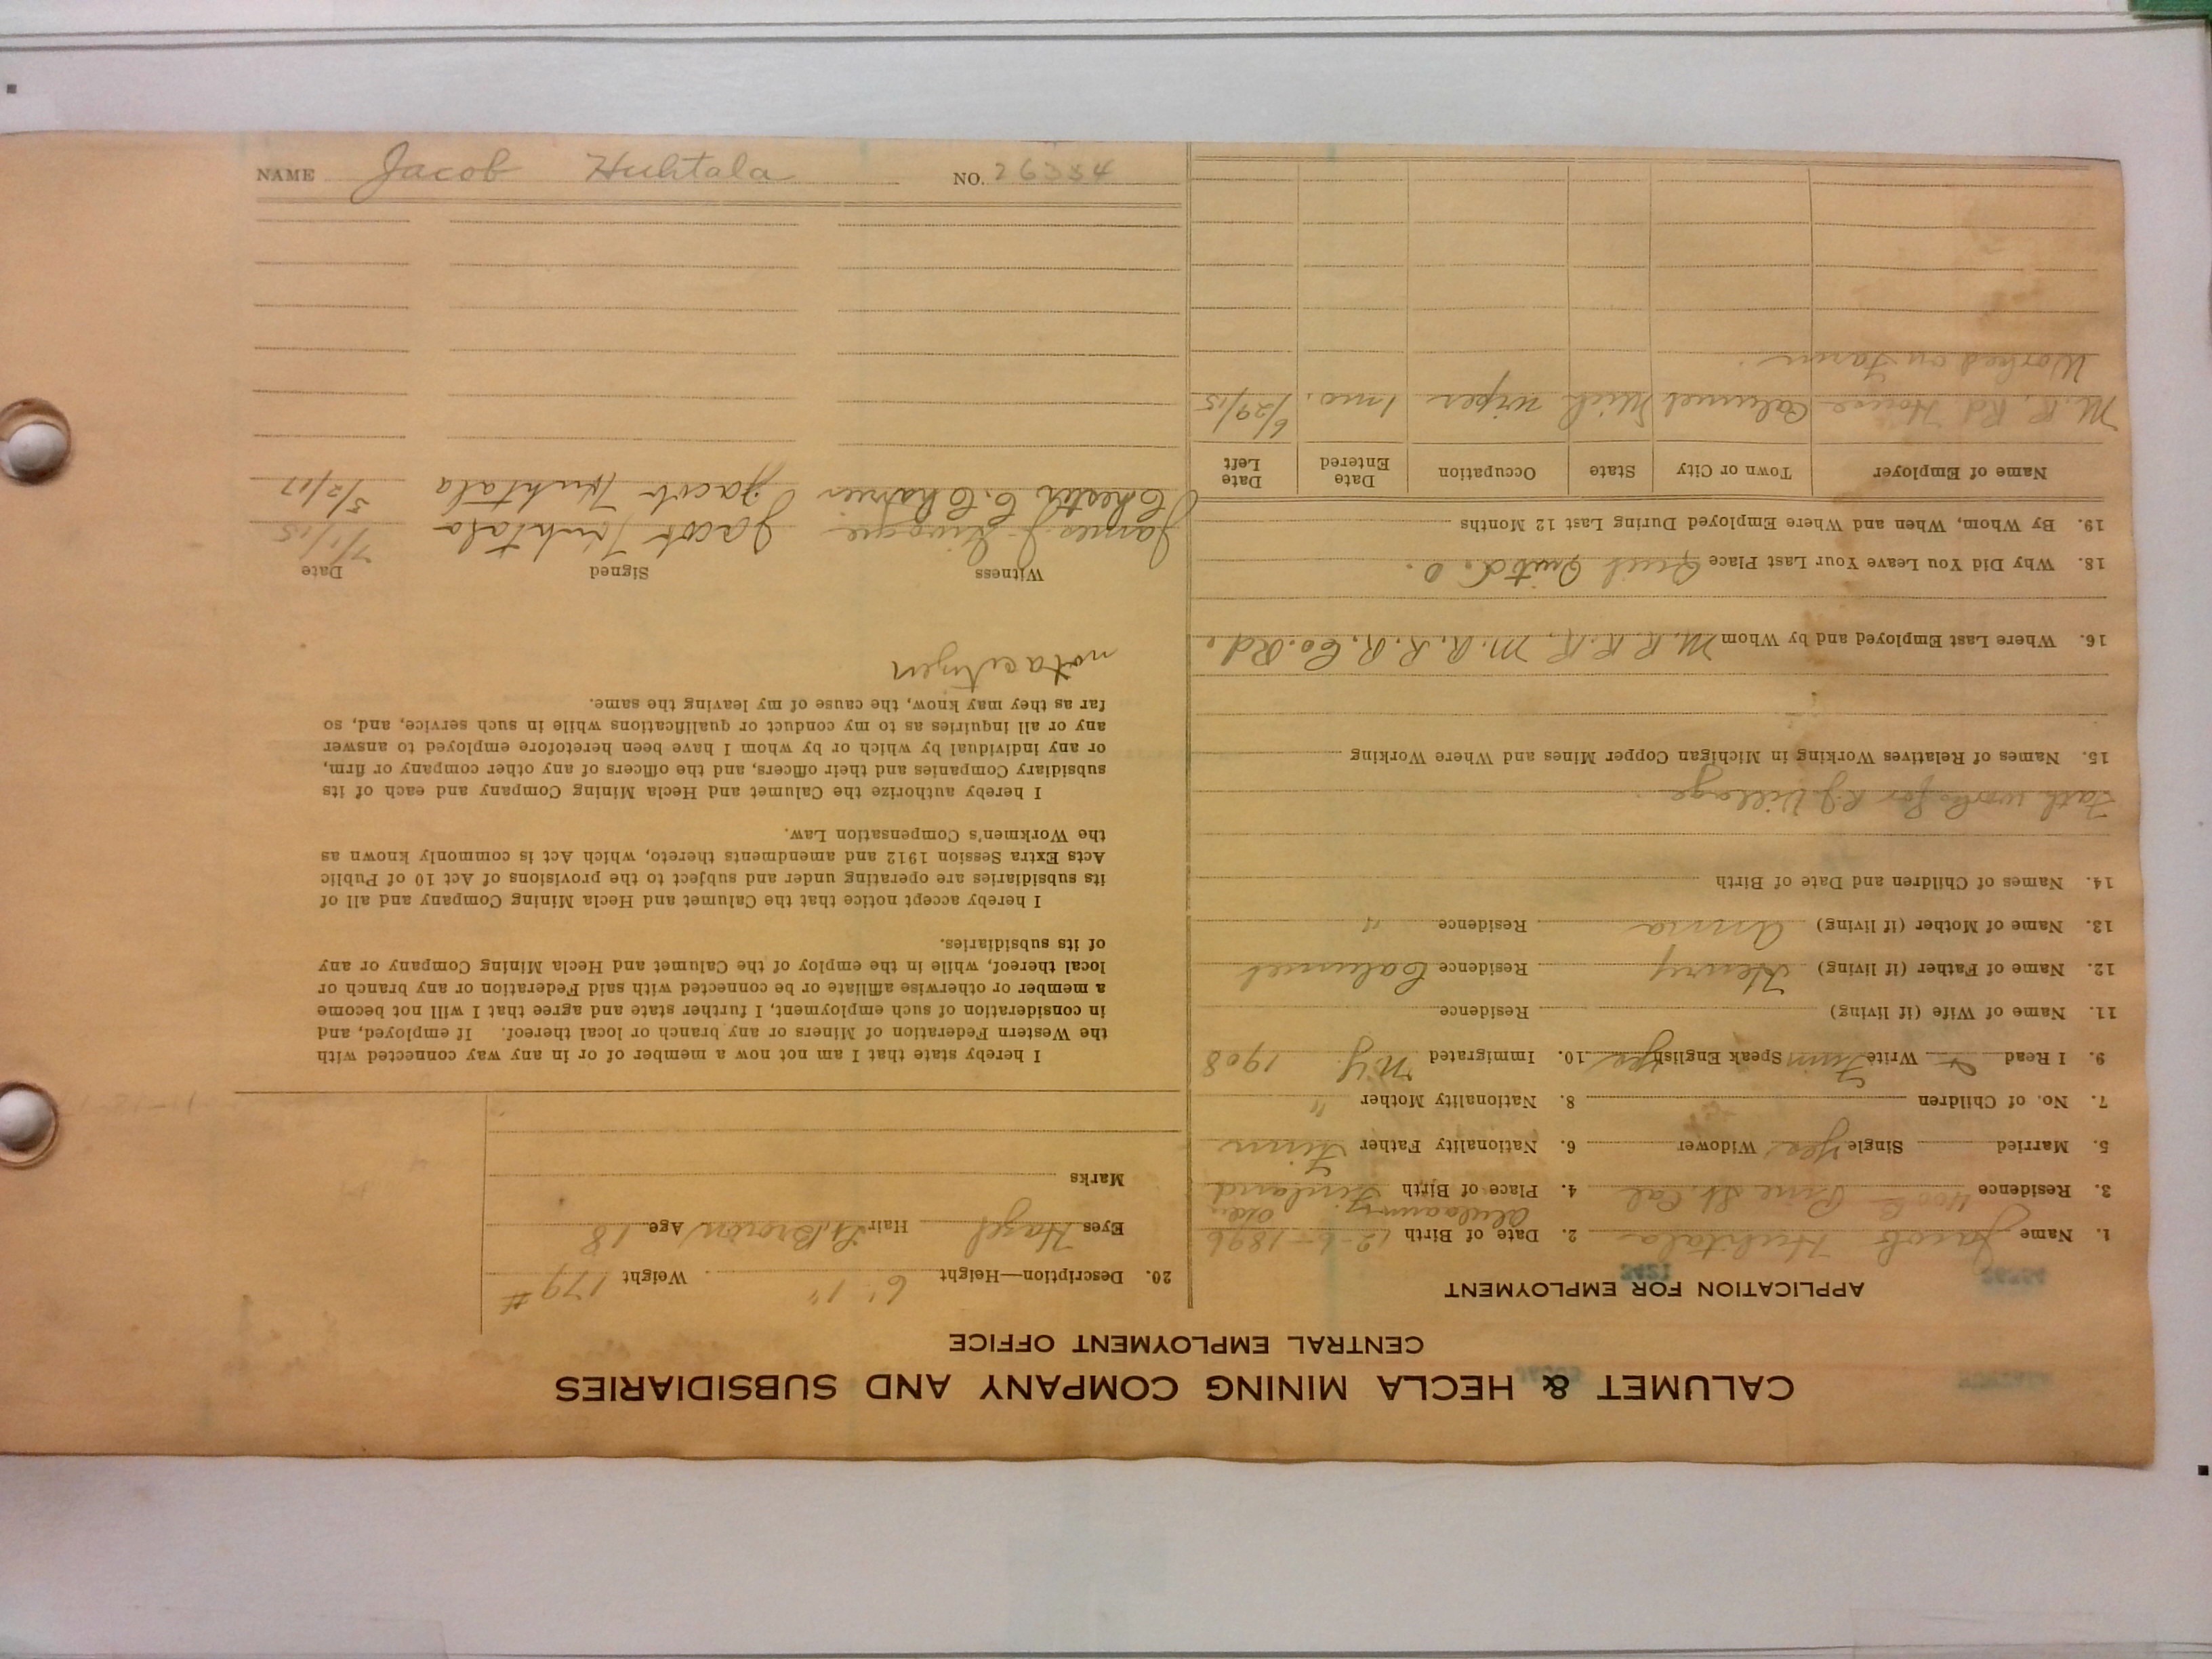 CALUMET & HECLA MINING COMPANY AND SUBSIDIARIES
CENTRAL EMPLOYMENT OFFICE
APPLICATION FOR EMPLOYMENT
3421
1. Name Jacob Huhtala 2. Date of Birth 12-6-1896
3. Residence 4006 Pine St. Cal 4. Place of Birth Finland
5. Married Single Yes Widower 6. Nationality Father Finn
7. No. of Children 8. Nationality Mother "
9. I Read & Write Finn Speak English yes 10. Immigrated N.Y. 1908
11. Name of Wife (if living) Residence
12. Name of Father (if living) Henry Residence Calumet
13. Name of Mother (if living) Anna Residence "
14. Names of Children and Date of Birth
Fath works for Village
15. Names of Relatives Working in Michigan Copper Mines and Where Working
16. Where Last Employed and by Whom M.R.R.R. M.R.R.R. Co. Rd.
18. Why Did You Leave Your Last Place Quit
19. By Whom, When and Where Employed During Last 12 Months
Name of Employer Town or City State Occupation Date Entered Date Left
M.R. Rd House Calumet Mich wiper 1 mo. 6/29/15
Worked on Farm.
20. Description—Height 6' 1" Weight 179 #
Eyes Hazel Hair Lt Brown Age 18
Marks
I hereby state that I am not now a member of or in any way connected with
the Western Federation of Miners or any branch or local thereof. If employed, and
in consideration of such employment, I further state and agree that I will not become
a member or otherwise affiliate or be connected with said Federation or any branch or
local thereof, while in the employ of the Calumet and Hecla Mining Company or any
of its subsidiaries.
I hereby accept notice that the Calumet and Hecla Mining Company and all of
its subsidiaries are operating under and subject to the provisions of Act 10 of Public
Acts Extra Session 1912 and amendments thereto, which Act is commonly known as
the Workmen's Compensation Law.
I hereby authorize the Calumet and Hecla Mining Company and each of its
subsidiary Companies and their officers, and the officers of any other company or firm,
or any individual by which or by whom I have been heretofore employed to answer
any or all inquiries as to my conduct or qualifications while in such service, and, so
far as they may know, the cause of my leaving the same.
not a citizen
Witness Signed Date
James J. Jacob Huhtala 7/1/15
Chester C. Jacob Huhtala 3/2/17
NAME Jacob Huhtala NO. 26334